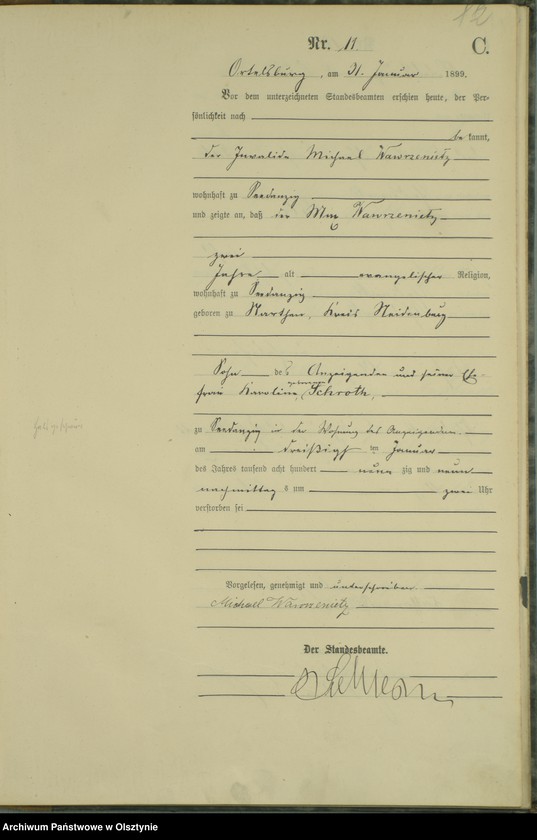 82
Nr. 11.
C.
Ortelsburg, am 31. Januar 1899.
Vor dem unterzeichneten Standesbeamten erschien heute, der Per-
sönlichkeit nach
be kannt,
der Invalide Michael Wawrzenietz
wohnhaft zu Seedanzig
und zeigte an, daß der Wawrzenietz
zwei
Jahre alt evangelischer Religion,
wohnhaft zu Seedanzig
geboren zu Narthen, Kreis Neidenburg
Sohn des Anzeigenden und seiner Ehe-
frau Karoline, geborenen Schroth,
zu Seedanzig in der Wohnung des Anzeigenden
am dreißigst en Januar
des Jahres tausend acht hundert neun zig und neun
nachmittag s um zwei Uhr
verstorben sei
Vorgelesen, genehmigt und unterschrieben
Michael Wawrzenietz
Der Standesbeamte.
Archiwum Państwowe w Olsztynie